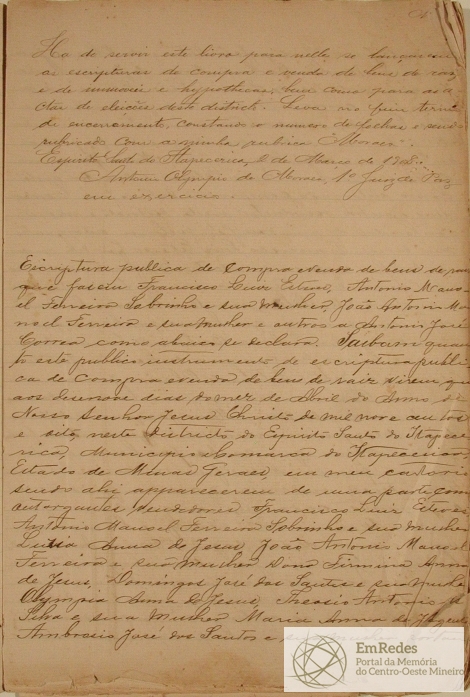 Ha de servir este livro para nelle se lançarem
as escripturas de compra e venda de bens de raiz
e de immoveis e hypothecas, bem como para as a
ctas de eleições deste districto. Leva no fim termo
de encerramento, constando o numero de folhas e sendo
rubricado com a minha rubrica Moraes.
Espirito Santo de Itapecerica, de Março de 1908.
Antonio Olympio de Moraes, 1º Juiz de Paz
em exercicio.
Escriptura publica de compra e venda de bens de raiz
que fasem Francisco Luiz Esteves, Antonio Mano
el Ferreira Sobrinho e sua mulher, João Antonio Ma
noel Ferreira e sua mulher e outros a Antonio José
Correa como abaixo se declara. Saibam quan
to este publico instrumento de escriptura publi
ca de compra e venda de bens de raiz virem que
aos desenove dias do mez de Abril do Anno de
Nosso Senhor Jesus Christo de mil nove centos
e oito, neste districto do Espirito Santo de Itapece
rica, Municipio e Comarca de Itapecerica,
Estado de Minas Geraes, em meu cartorio
sendo ahi appareceram de uma parte como
outorgantes vendedores Francisco Luiz Esteves
Antonio Manoel Ferreira Sobrinho e sua mulher
Anna de Jesus, João Antonio Manoel
Ferreira e sua mulher Dona Firmina Anna
de Jesus, Domingos José dos Santos e sua mulher
Olympia Anna de Jesus, Antonio da
Silva e sua mulher Maria Anna de Jesus
Ambrosio José dos Santos e sua mulher
EmRedes
Portal da Memória
do Centro-Oeste Mineiro